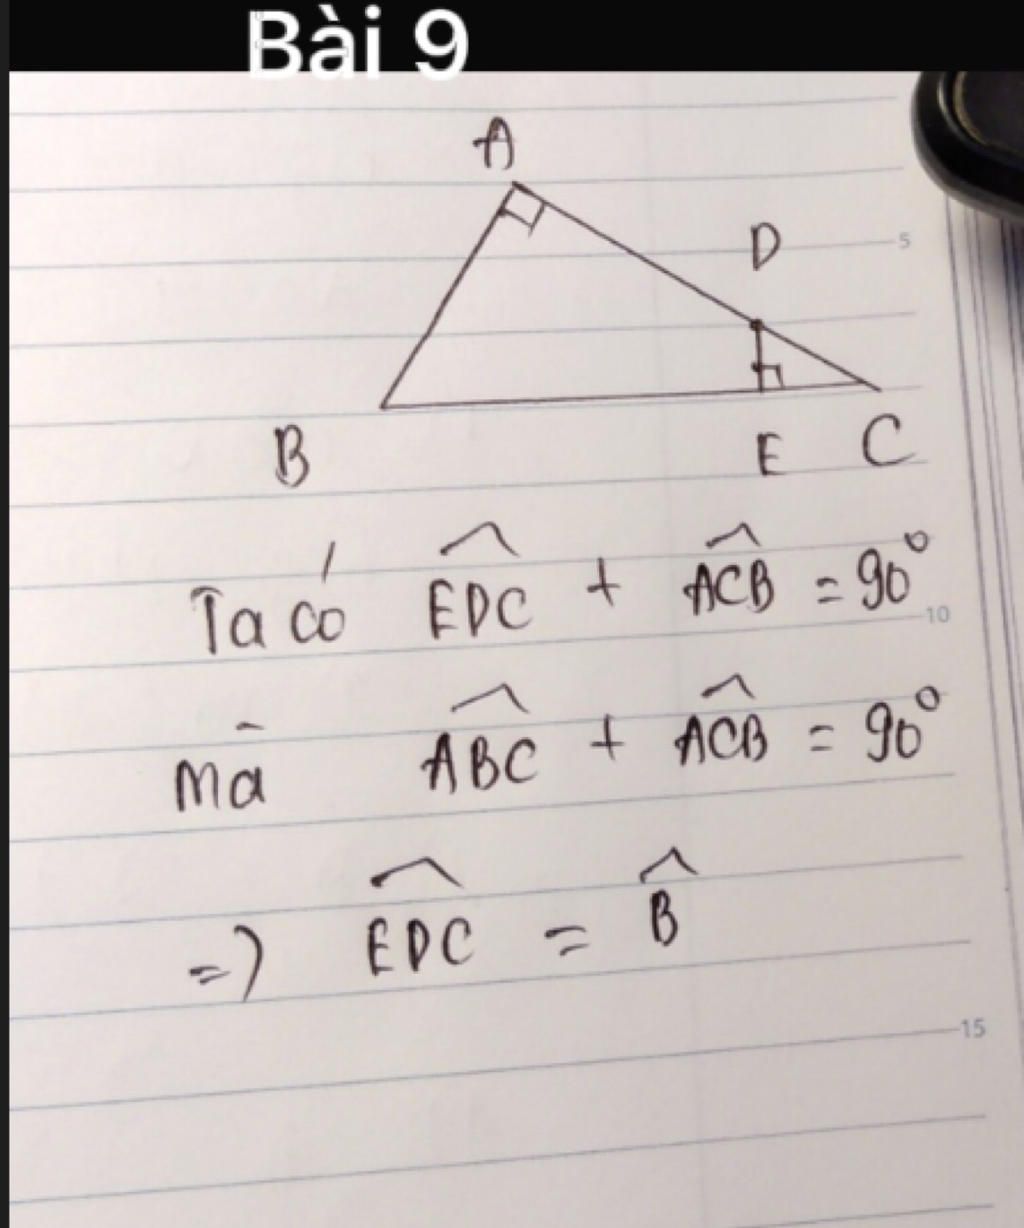 Bài 9
A
D
5
B
E C
Ta có EDC + ACB = 90°
10
Mà ABC + ACB = 90°
=> EDC = B
15